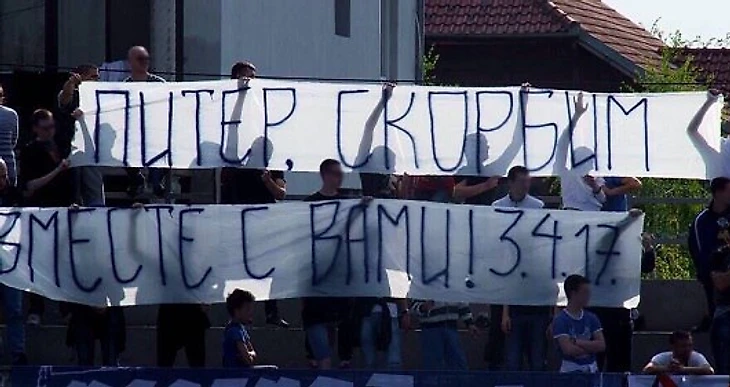 ПИТЕР, СКОРБИМ
ВМЕСТЕ С ВАМИ! 3.4.17.